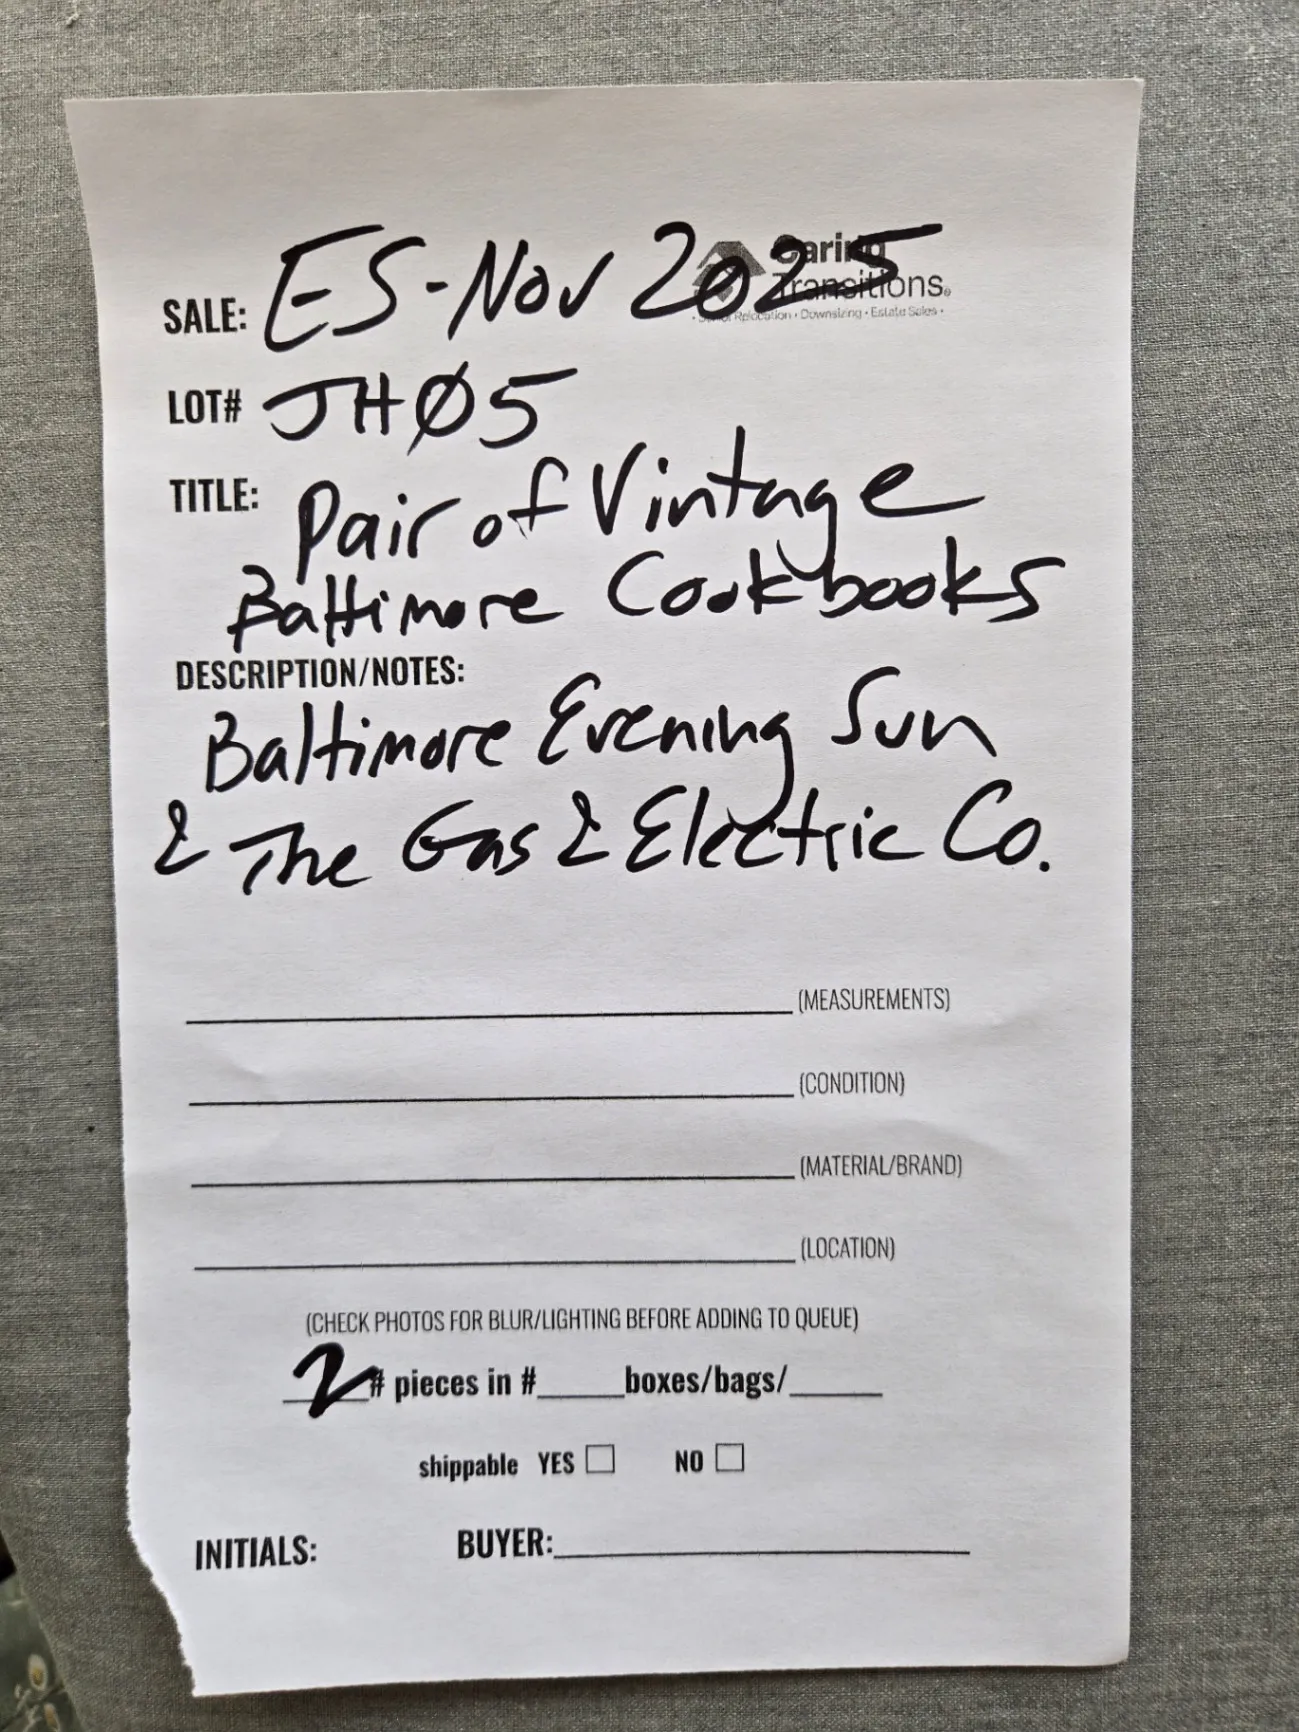 Caring
Transitions®
Senior Relocation • Downsizing • Estate Sales •
SALE: ES-Nov 2025
LOT# JHØ5
TITLE: Pair of Vintage
Baltimore Cookbooks
DESCRIPTION/NOTES:
Baltimore Evening Sun
& The Gas & Electric Co.
(MEASUREMENTS)
(CONDITION)
(MATERIAL/BRAND)
(LOCATION)
(CHECK PHOTOS FOR BLUR/LIGHTING BEFORE ADDING TO QUEUE)
2 # pieces in #____ boxes/bags/____
shippable YES ☐ NO ☐
INITIALS: BUYER:____